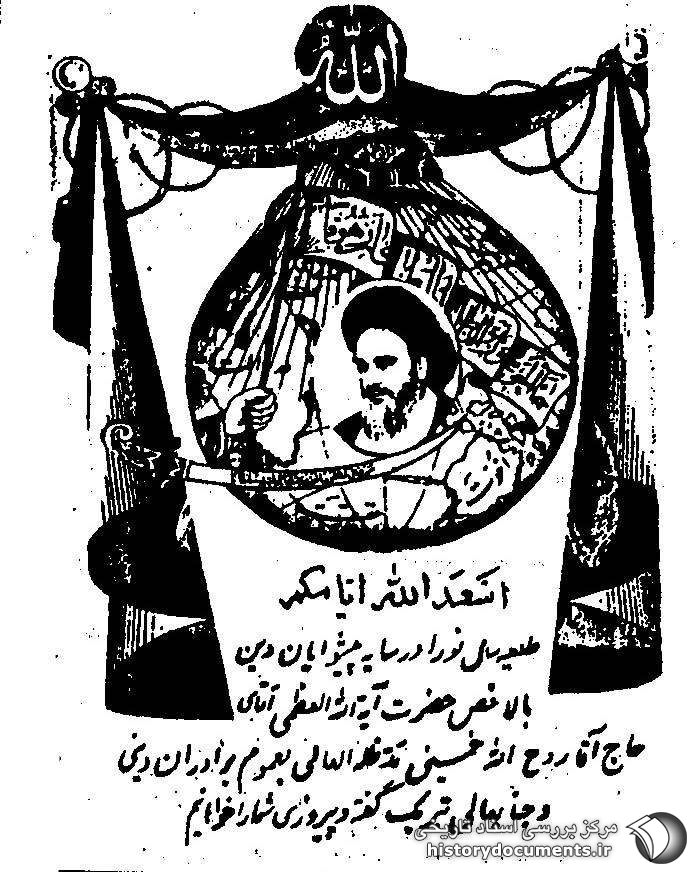 الله
اسعد الله ایامکم
طلیعه سال نو را در سایه پیشوایان دین
بالاخص حضرت آیة الله العظمی آقای
حاج آقا روح الله خمینی مد ظله العالی بعموم برادران دینی
و جنابعالی تبریک گفته و پیروزی شما را خواهانیم
مرکز بررسی اسناد تاریخی
historydocuments.ir